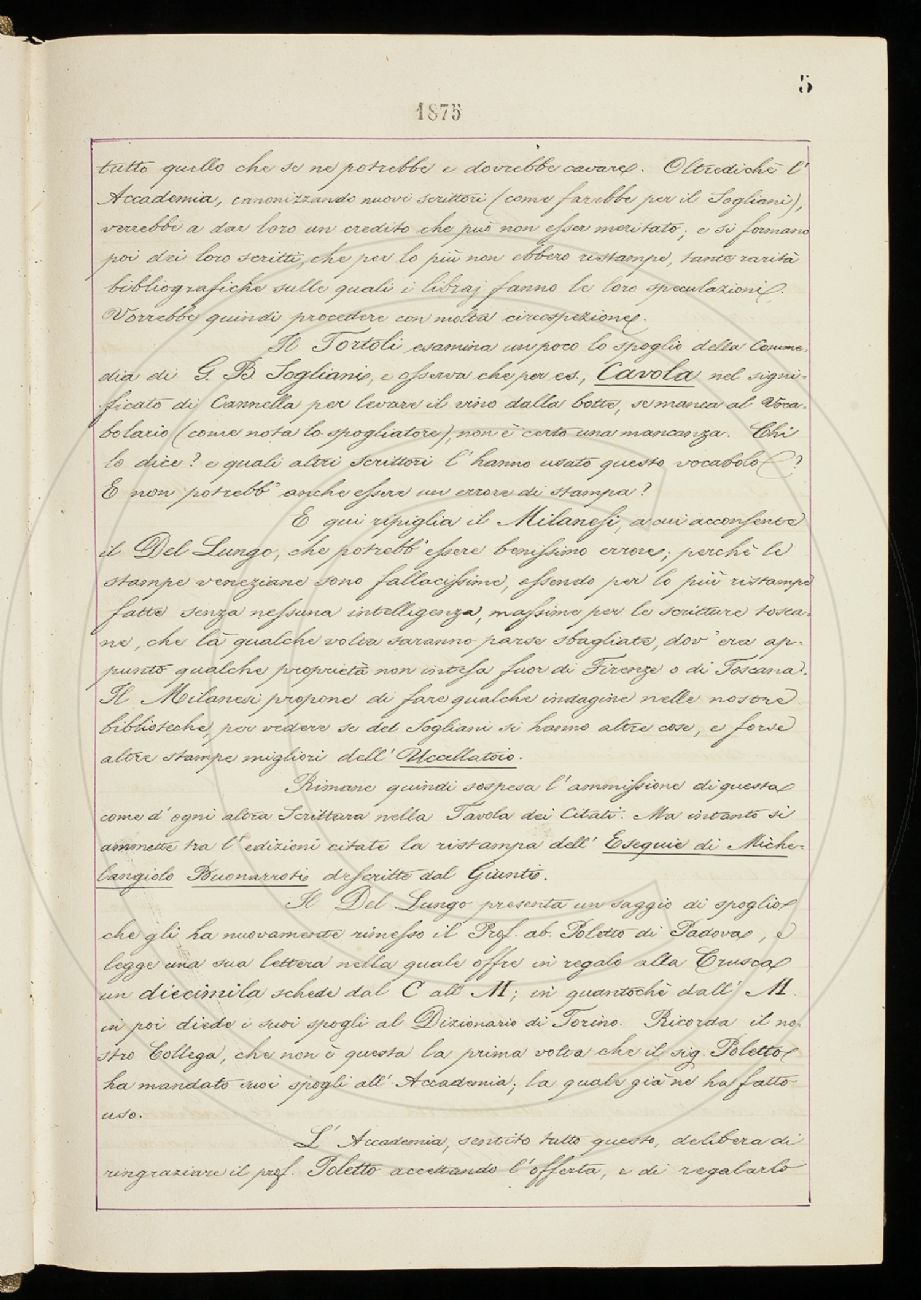 5
1875
tutto quello che se ne potrebbe e dovrebbe cavare. Oltredichè l'
Accademia, canonizzando nuovi scrittori (come farebbe per il Sogliani),
verrebbe a dar loro un credito che può non esser meritato; e si formano
poi dei loro scritti, che per lo più non ebbero ristampe, tante rarità
bibliografiche sulle quali i libraj fanno le loro speculazioni.
Vorrebbe quindi procedere con molta circospezione.
Il Tortoli esamina un poco lo spoglio della Comme-
dia di G. B. Sogliani, e osserva che per es., Cavola nel signi-
ficato di Cannella per levare il vino dalla botte, se manca al Voca-
bolario (come nota lo spogliatore), non è certo una mancanza. Chi
lo dice? e quali altri scrittori l'hanno usato questo vocabolo?
E non potrebb' anche essere un errore di stampa?
E qui ripiglia il Milanesi, a cui acconsente
il Del Lungo, che potrebb' essere benissimo errore; perchè le
stampe veneziane sono fallacissime, essendo per lo più ristampe
fatte senza nessuna intelligenza, massime per le scritture tosca-
ne, che là qualche volta saranno parse sbagliate, dov' era ap-
punto qualche proprietà non intesa fuor di Firenze o di Toscana.
Il Milanesi propone di fare qualche indagine nelle nostre
biblioteche, per vedere se del Sogliani si hanno altre cose, e forse
altre stampe migliori dell' Uccellatoio.
Rimane quindi sospesa l'ammissione di questa
come d' ogni altra Scrittura nella Tavola dei Citati. Ma intanto si
ammette tra l' edizioni citate la ristampa dell' Esequie di Miche-
langiolo Buonarroti descritte dal Giunti.
Il Del Lungo presenta un saggio di spoglio
che gli ha nuovamente rimesso il Prof. ab. Poletto di Padova, e
legge una sua lettera nella quale offre in regalo alla Crusca
un diecimila schede dal C all' M; in quantochè dall' M
in poi diede i suoi spogli al Dizionario di Torino. Ricorda il no-
stro Collega, che non è questa la prima volta che il sig. Poletto
ha mandato suoi spogli all' Accademia; la quale già ne ha fatto
uso.
L' Accademia, sentito tutto questo, delibera di
ringraziare il prof. Poletto accettando l'offerta, e di regalarlo